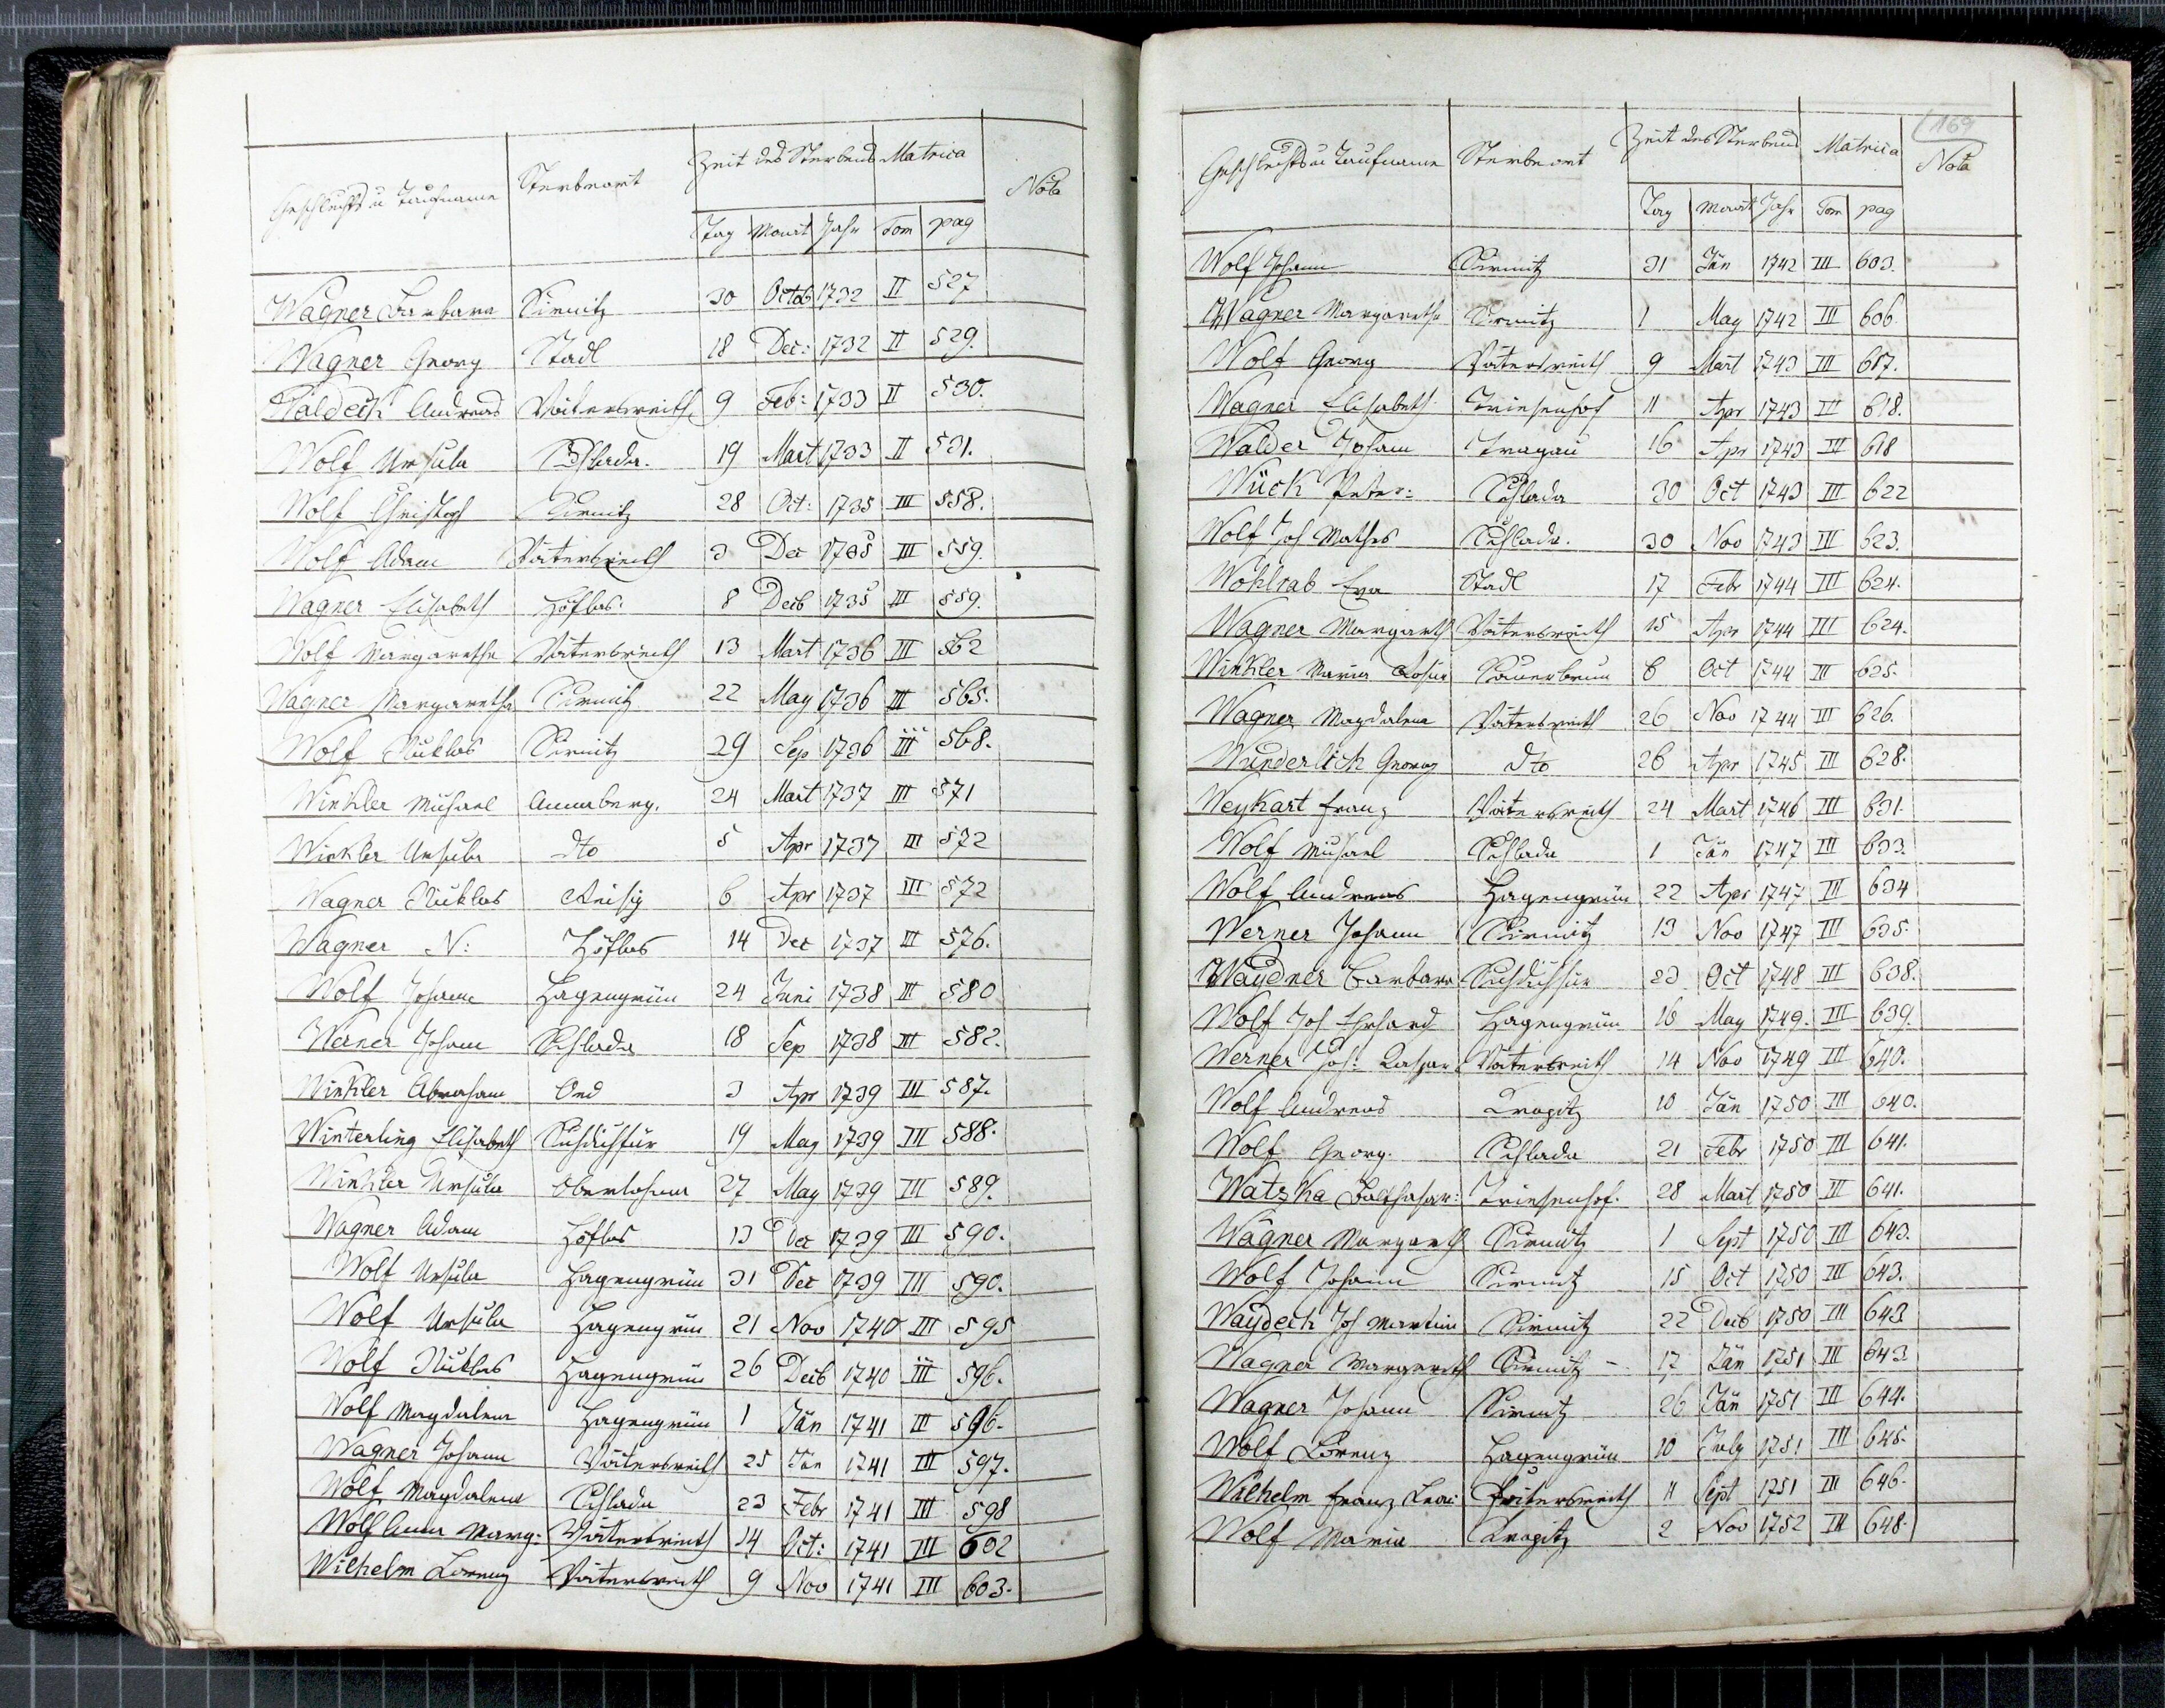 Geschlechts u Taufname Sterbeort Zeit des Sterbens Matrica Nota
Tag Monat Jahr Tom pag
Wagner Barbara Sirmitz 30 Octob 1732 II 527
Wagner Georg Stadl 18 Dec: 1732 II 529.
Waldeck Andreas Vatersreith 9 Feb: 1733 II 530.
Wolf Ursula Schlada. 19 Mart 1733 II 531.
Wolf Christoph Sirmitz 28 Oct: 1735 III 558.
Wolf Adam Vatersreith 3 Dec 1735 III 559.
Wagner Elisabeth Höflas. 8 Decb 1735 III 559.
Wolf Margaretha Vatersreith 13 Mart 1736 III 562
Wagner Margaretha Sirmitz 22 May 1736 III 565.
Wolf Niklas Sirmitz 29 Sep 1736 III 568.
Winkler Michael Annaberg. 24 Mart 1737 III 571
Winkler Ursula dto 5 Apr 1737 III 572
Wagner Niklas Reisig 6 Apr 1737 III 572
Wagner N: Höflas 14 Dec 1737 III 576.
Wolf Johann Hagengrün 24 Juni 1738 III 580
Werner Johann Schlada 18 Sep 1738 III 582.
Winkler Abraham Oed 3 Apr 1739 III 587.
Winterling Elisabeth 19 May 1739 III 588.
Winkler Ursula Oberlohma 27 May 1739 III 589.
Wagner Adam Höflas 13 Dec 1739 III 590.
Wolf Ursula Hagengrün 31 Dec 1739 III 590.
Wolf Ursula Hagengrün 21 Nov 1740 III 595
Wolf Niklas Hagengrün 26 Decb 1740 III 596.
Wolf Magdalena Hagengrün 1 Jän 1741 III 596.
Wagner Johann Vatersreith 25 Jän 1741 III 597.
Wolf Magdalena Schlada 23 Febr 1741 III 598
Wolf Anna Marg: Vatersreith 14 Oct: 1741 III 602
Wilhelm Lorenz Vatersreith 9 Nov 1741 III 603.
169
Geschlechts u Taufname Sterbeort Zeit des Sterbens Matrica Nota
Tag Monat Jahr Tom pag
Wolf Johann Sirmitz 31 Jän 1742 III 603.
Wagner Margaretha Sirmitz 1 May 1742 III 606.
Wolf Georg Vatersreith 9 Mart 1743 III 617.
Wagner Elisabeth Triesenhof 11 Apr 1743 III 618.
Walder Johann Tragau 16 Apr 1743 III 618
Wück Peter: Schlada 30 Oct 1743 III 622
Wolf Joh Mathes Schlada. 30 Nov 1743 III 623.
Wohlrab Eva Stadl 17 Febr 1744 III 624.
Wagner Margareth Vatersreith 15 Apr 1744 III 624.
Winkler Maria Rosina Sauerbrun 6 Oct 1744 III 625.
Wagner Magdalena Vatersreith 26 Nov 1744 III 626.
Wunderlich Georg dto 26 Apr 1745 III 628.
Weykart Franz Vatersreith 24 Mart 1746 III 631.
Wolf Michael Schlada 1 Jän 1747 III 633.
Wolf Andreas Hagengrün 22 Apr 1747 III 634
Werner Johann Sirmitz 13 Nov 1747 III 635.
Waydner Barbara 23 Oct 1748 III 638.
Wolf Joh Erhard Hagengrün 16 May 1749. III 639.
Werner Joh: Kaspar Vatersreith 14 Nov 1749 III 640.
Wolf Andreas Kropitz 10 Jän 1750 III 640.
Wolf Georg. Schlada 21 Febr 1750 III 641.
Watzka Balthasar: Triesenhof. 28 Mart 1750 III 641.
Wagner Margareth Sirmitz 1 Sept 1750 III 643.
Wolf Johann Sirmitz 15 Oct 1750 III 643.
Waydeck Joh Martin Sirmitz 22 Decb 1750 III 643
Wagner Margareth Sirmitz - 17 Jän 1751 III 643
Wagner Johann Sirmitz 26 Jän 1751 III 644.
Wolf Lorenz Hagengrün 10 July 1751 III 645.
Wilhelm Franz Vatersreith 11 Sept 1751 III 646.
Wolf Maria Kropitz 2 Nov 1752 III 648.